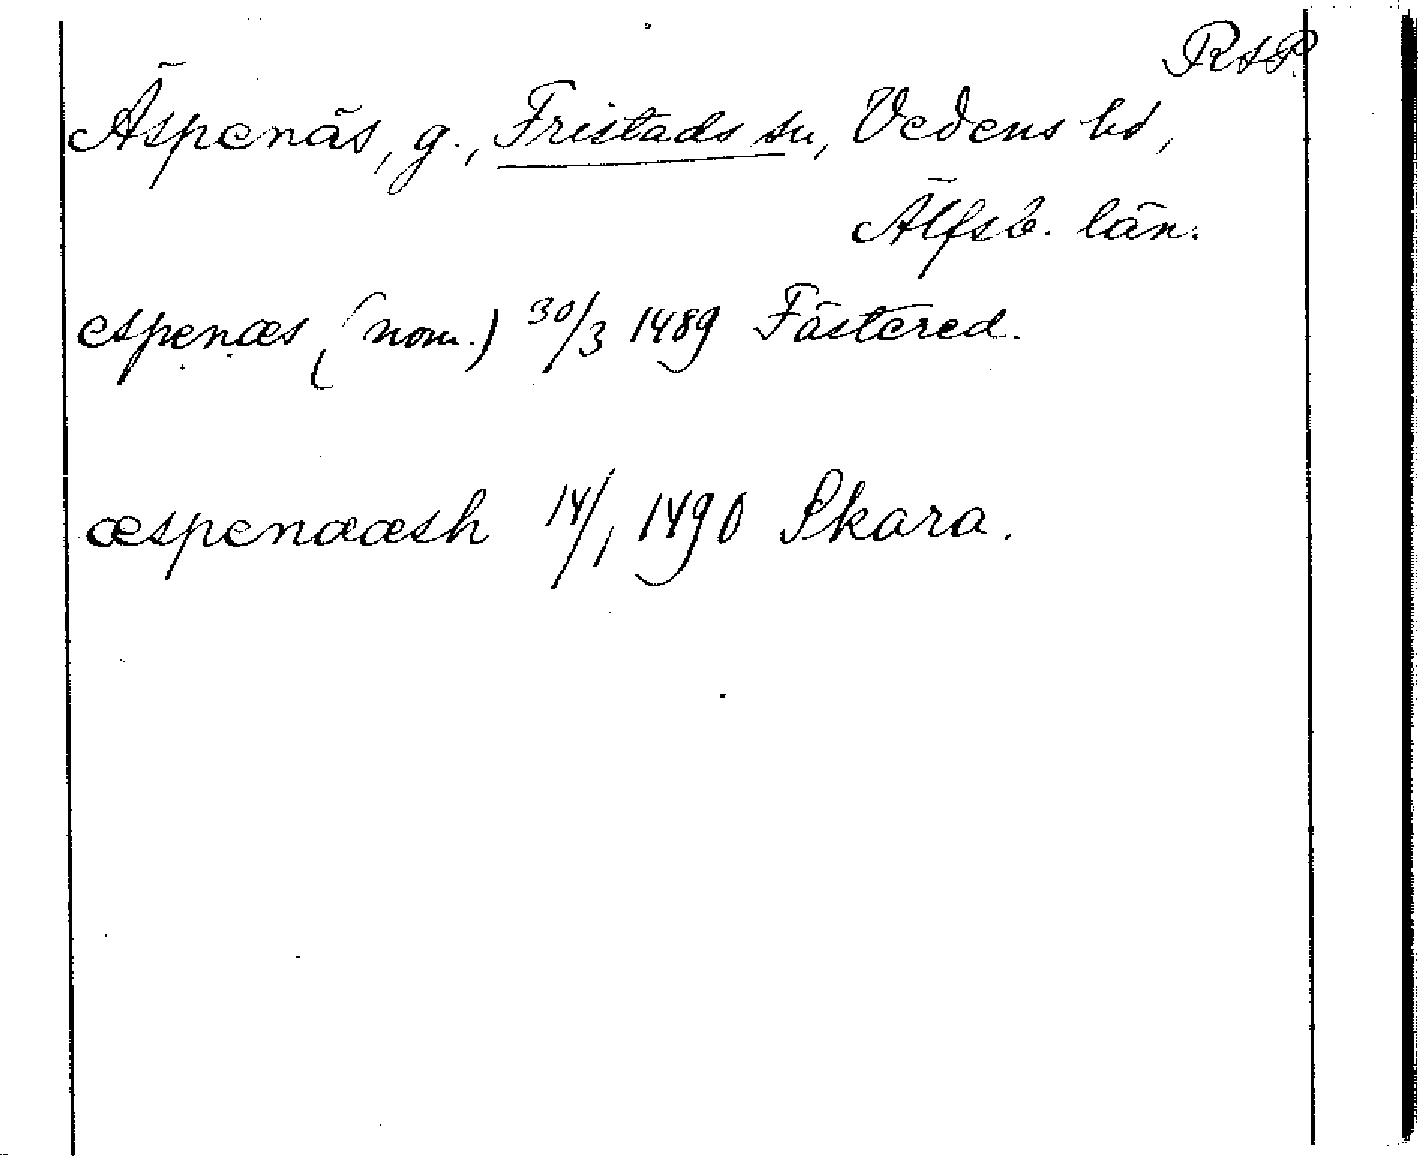 RAP.
Äspenäs, g., Fristads sn, Vedens hd,
Älfsb. län.
espenæs (nom.) 30/3 1489 Fästered.
æspenææsh 14/1 1490 Skara.